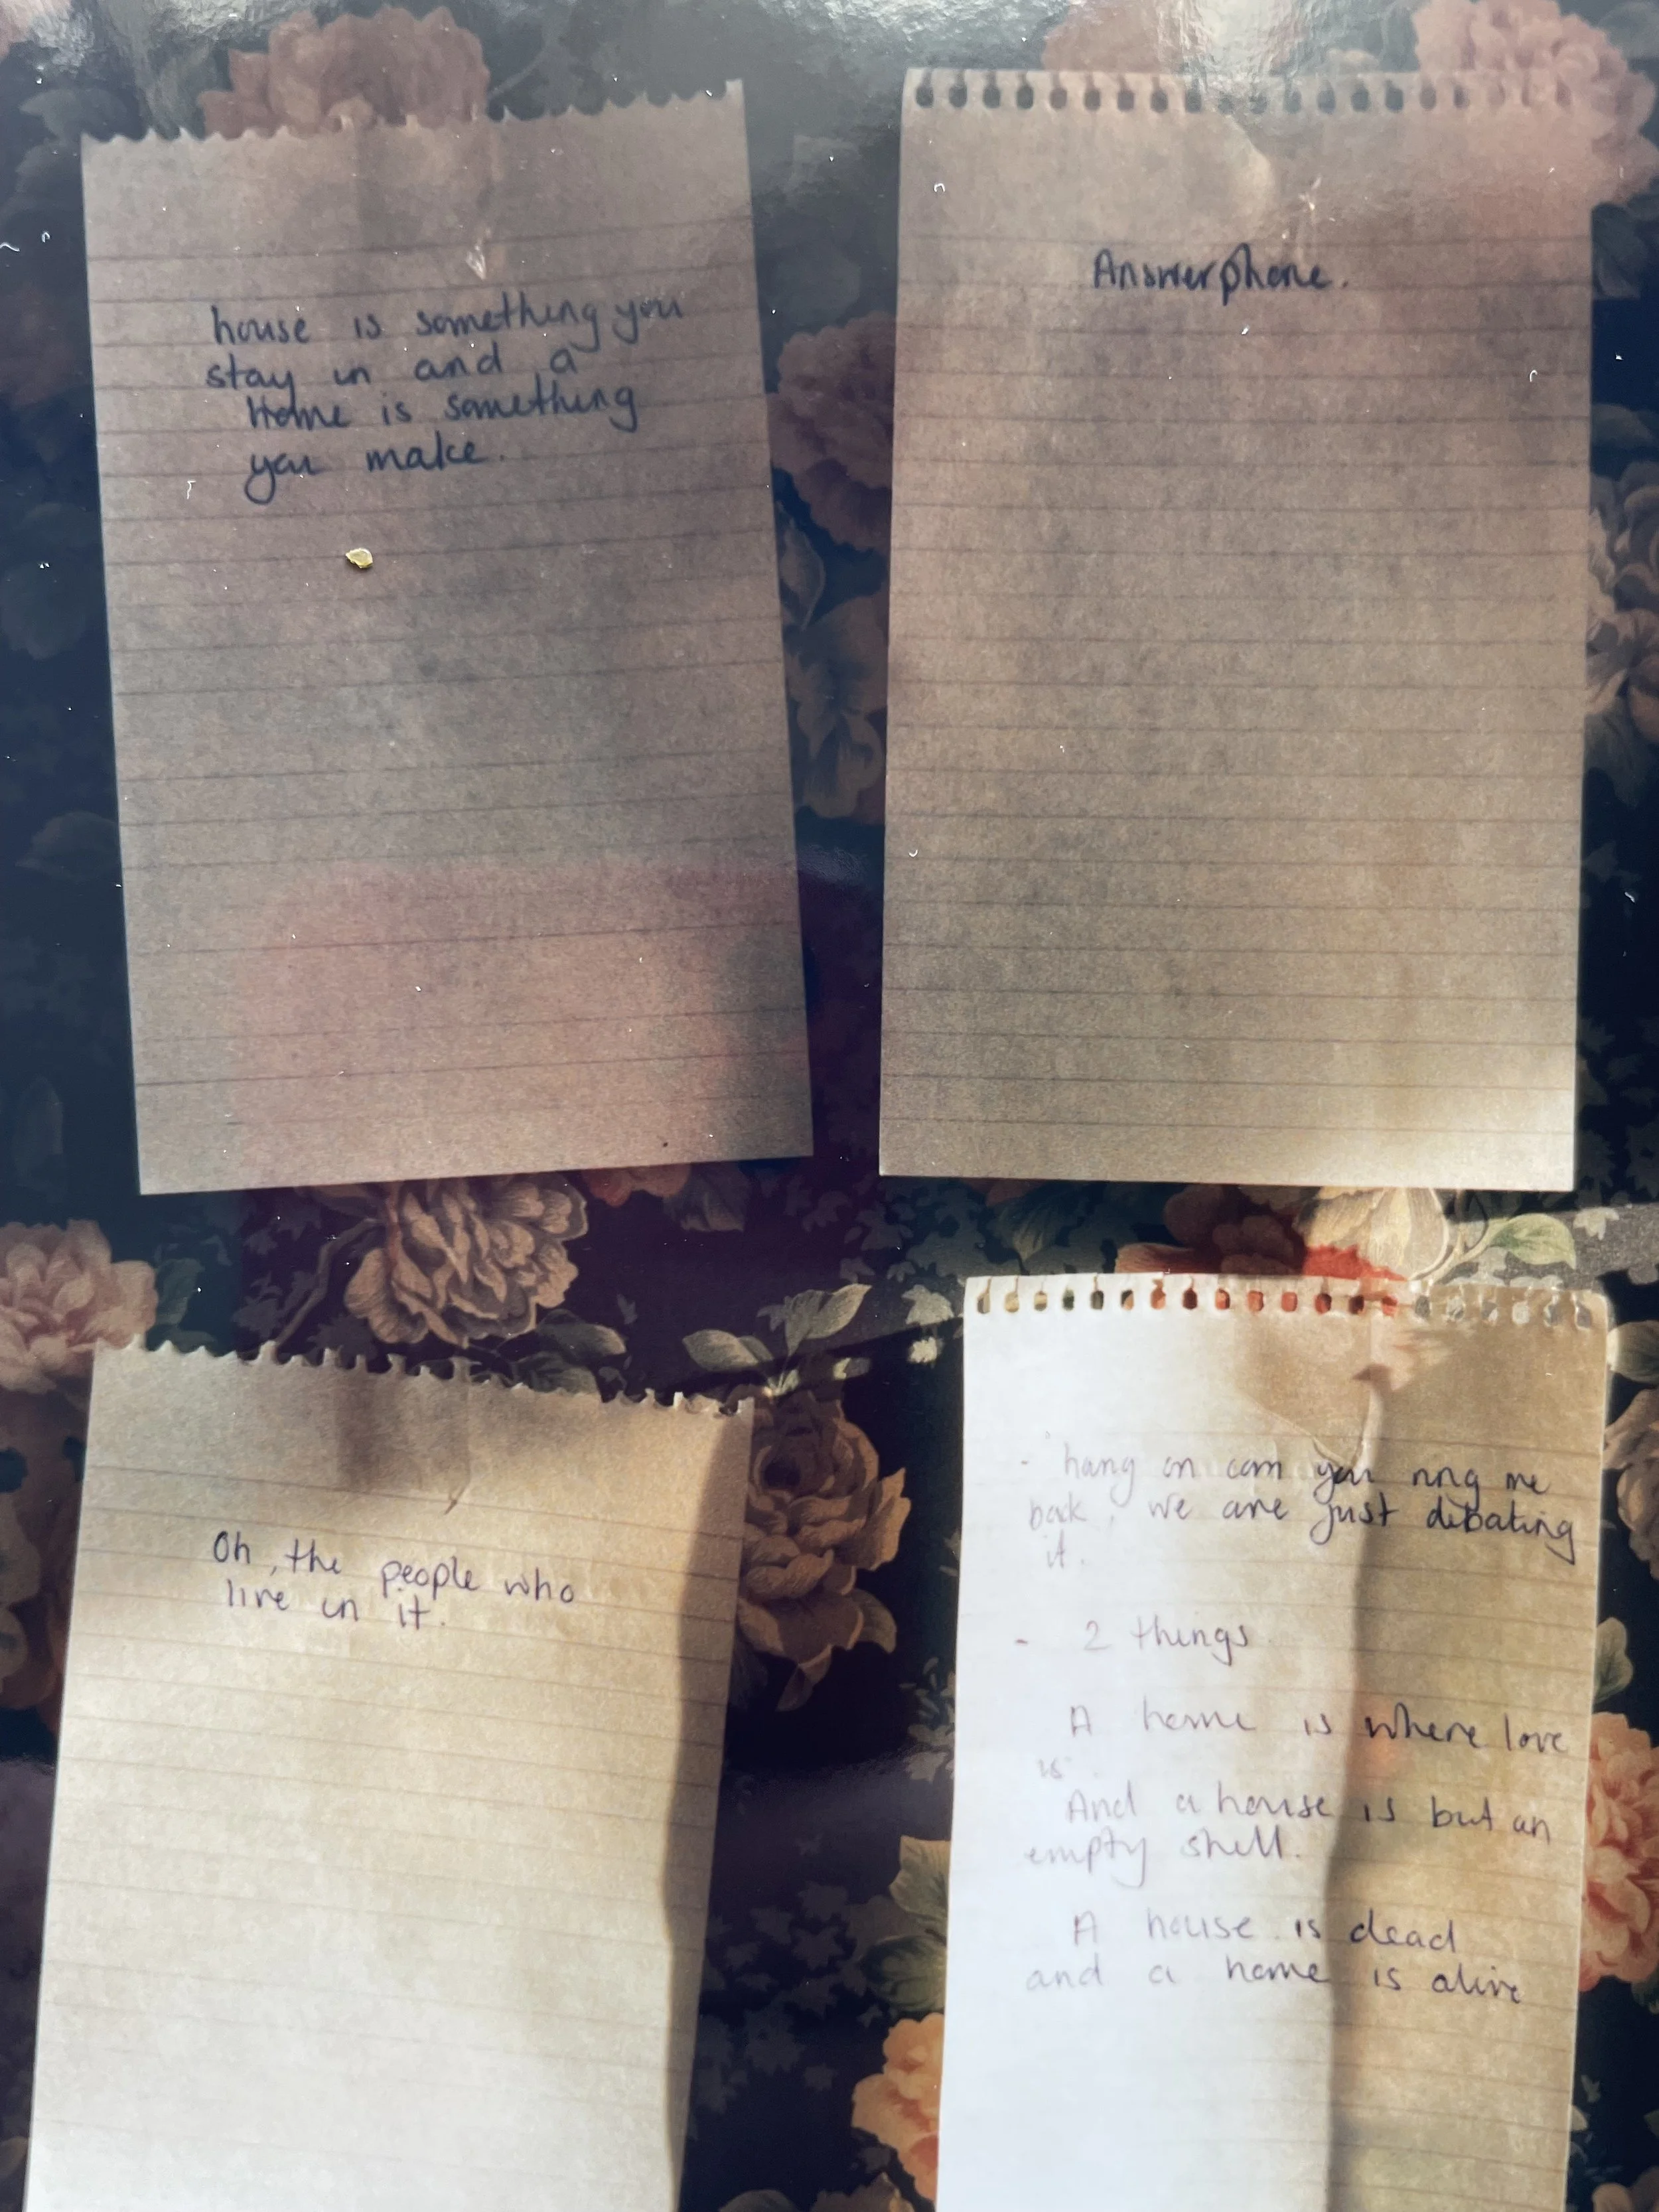 house is something you
stay in and a
Home is something
you make.
Answerphone.
Oh, the people who
live in it.
- hang on can you ring me
back, we are just debating
it.
- 2 things
A home is where love
is.
And a house is but an
empty shell.
A house is dead
and a home is alive